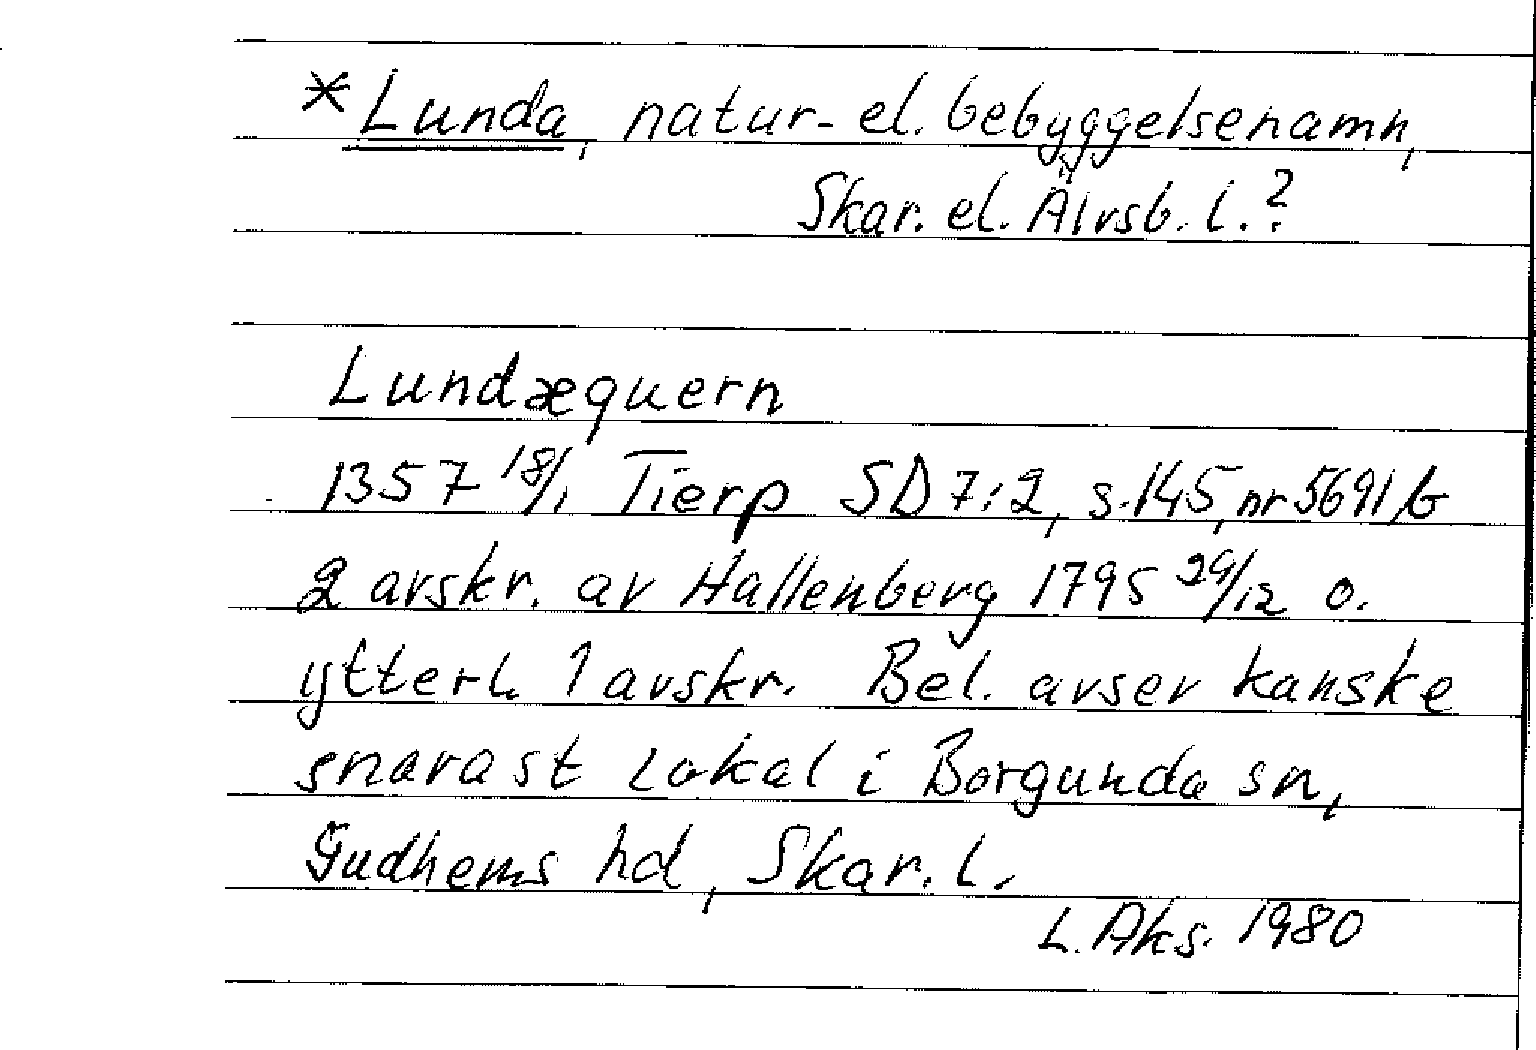 *Lunda, natur- el. bebyggelsenamn,
Skar. el. Älvsb. l.?
Lundæquern
1357 18/1 Tierp SD 7:2, s. 145, nr 5691/b
2 avskr. av Hallenberg 1795 29/12 o.
ytterl. 1 avskr. Bel. avser kanske
snarast lokal i Borgunda sn,
Gudhems hd, Skar. l.
L. Aks. 1980